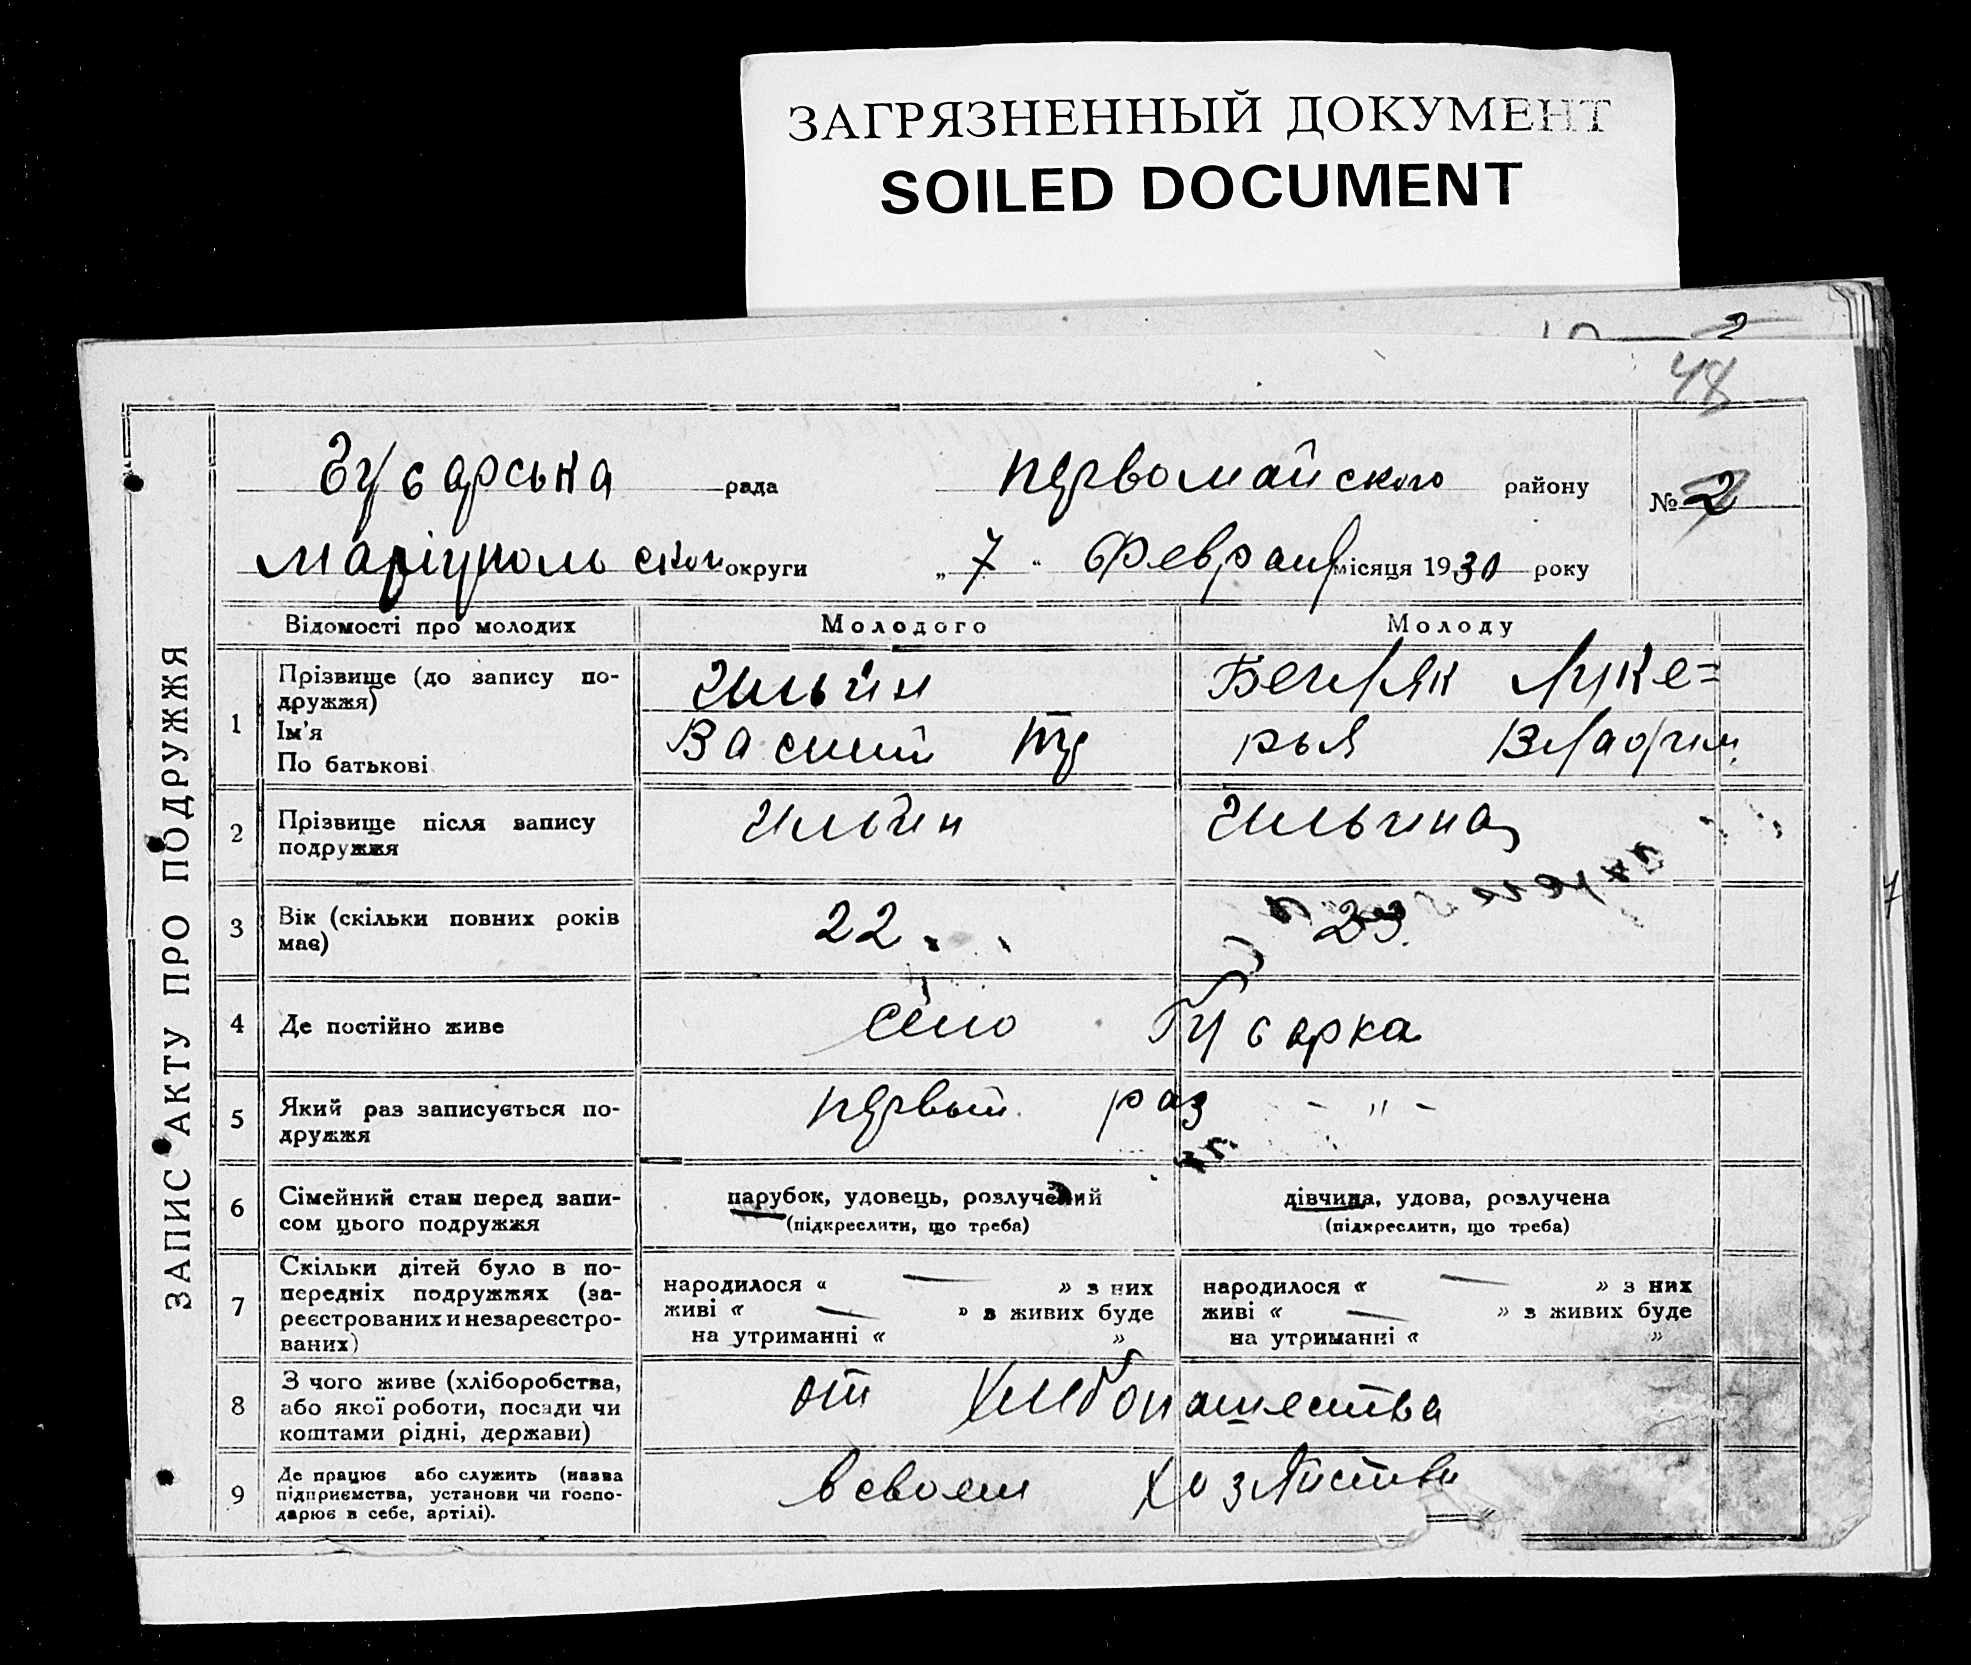 ЗАГРЯЗНЕННЫЙ ДОКУМЕНТ
SOILED DOCUMENT
48
ЗАПИС АКТУ ПРО ПОДРУЖЖЯ
Гусарська рада Первомайского району № 2
Маріупольской округи „7“ Февраля місяця 1930 року
Відомості про молодих Молодого Молоду
1 Прізвище (до запису по-
дружжя)
Ім'я
По батькові
Ильин
Василий
Луке=
рья Владим.
2 Прізвище після запису
подружжя
Ильин Ильина
3 Вік (скільки повних років
має)
22 23.
4 Де постійно живе село Гусарка
5 Який раз записується по-
дружжя
первый раз - " -
6 Сімейний стан перед запи-
сом цього подружжя
парубок, удовець, розлучений
(підкреслити, що треба)
дівчина, удова, розлучена
(підкреслити, що треба)
7 Скільки дітей було в по-
передніх подружжях (за-
реєстрованих и незареєстро-
ваних)
народилося « — » з них
живі « — » в живих буде
на утриманні « »
народилося « — » з них
живі « — » з живих буде
на утриманні « »
8 З чого живе (хліборобства,
або якої роботи, посади чи
коштами рідні, держави)
от хлебопашества
9 Де працює або служить (назва
підприємства, установи чи госпо-
дарює в себе, артілі).
в своем хозяйстве